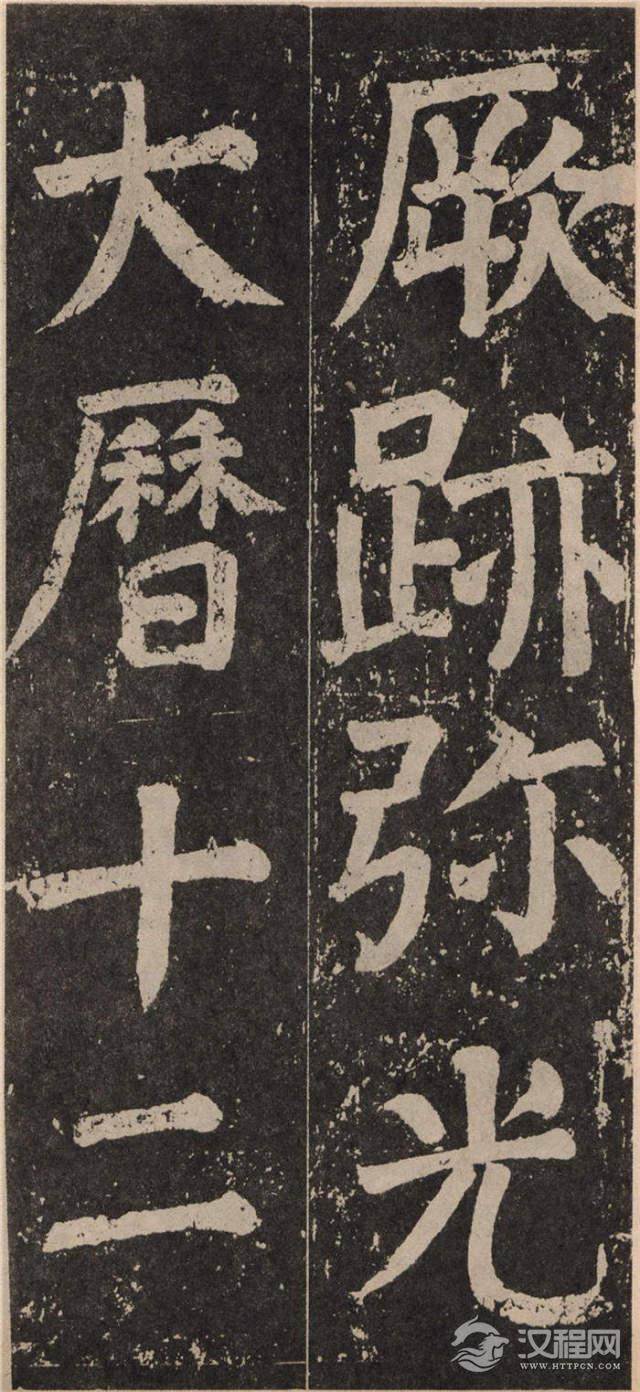 厥跡弥光
大曆十二
汉程网
WWW.HTTPCN.COM